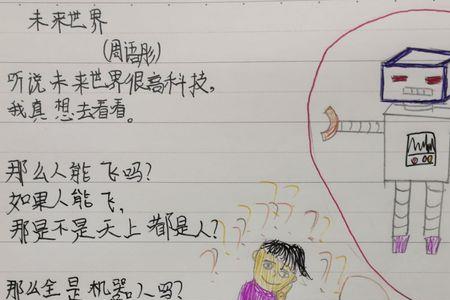 未来世界
(周语彤)
听说未来世界很高科技,
我真想去看看。
那么人能飞吗?
如果人能飞,
那是不是天上都是人?
那么全是机器人吗?